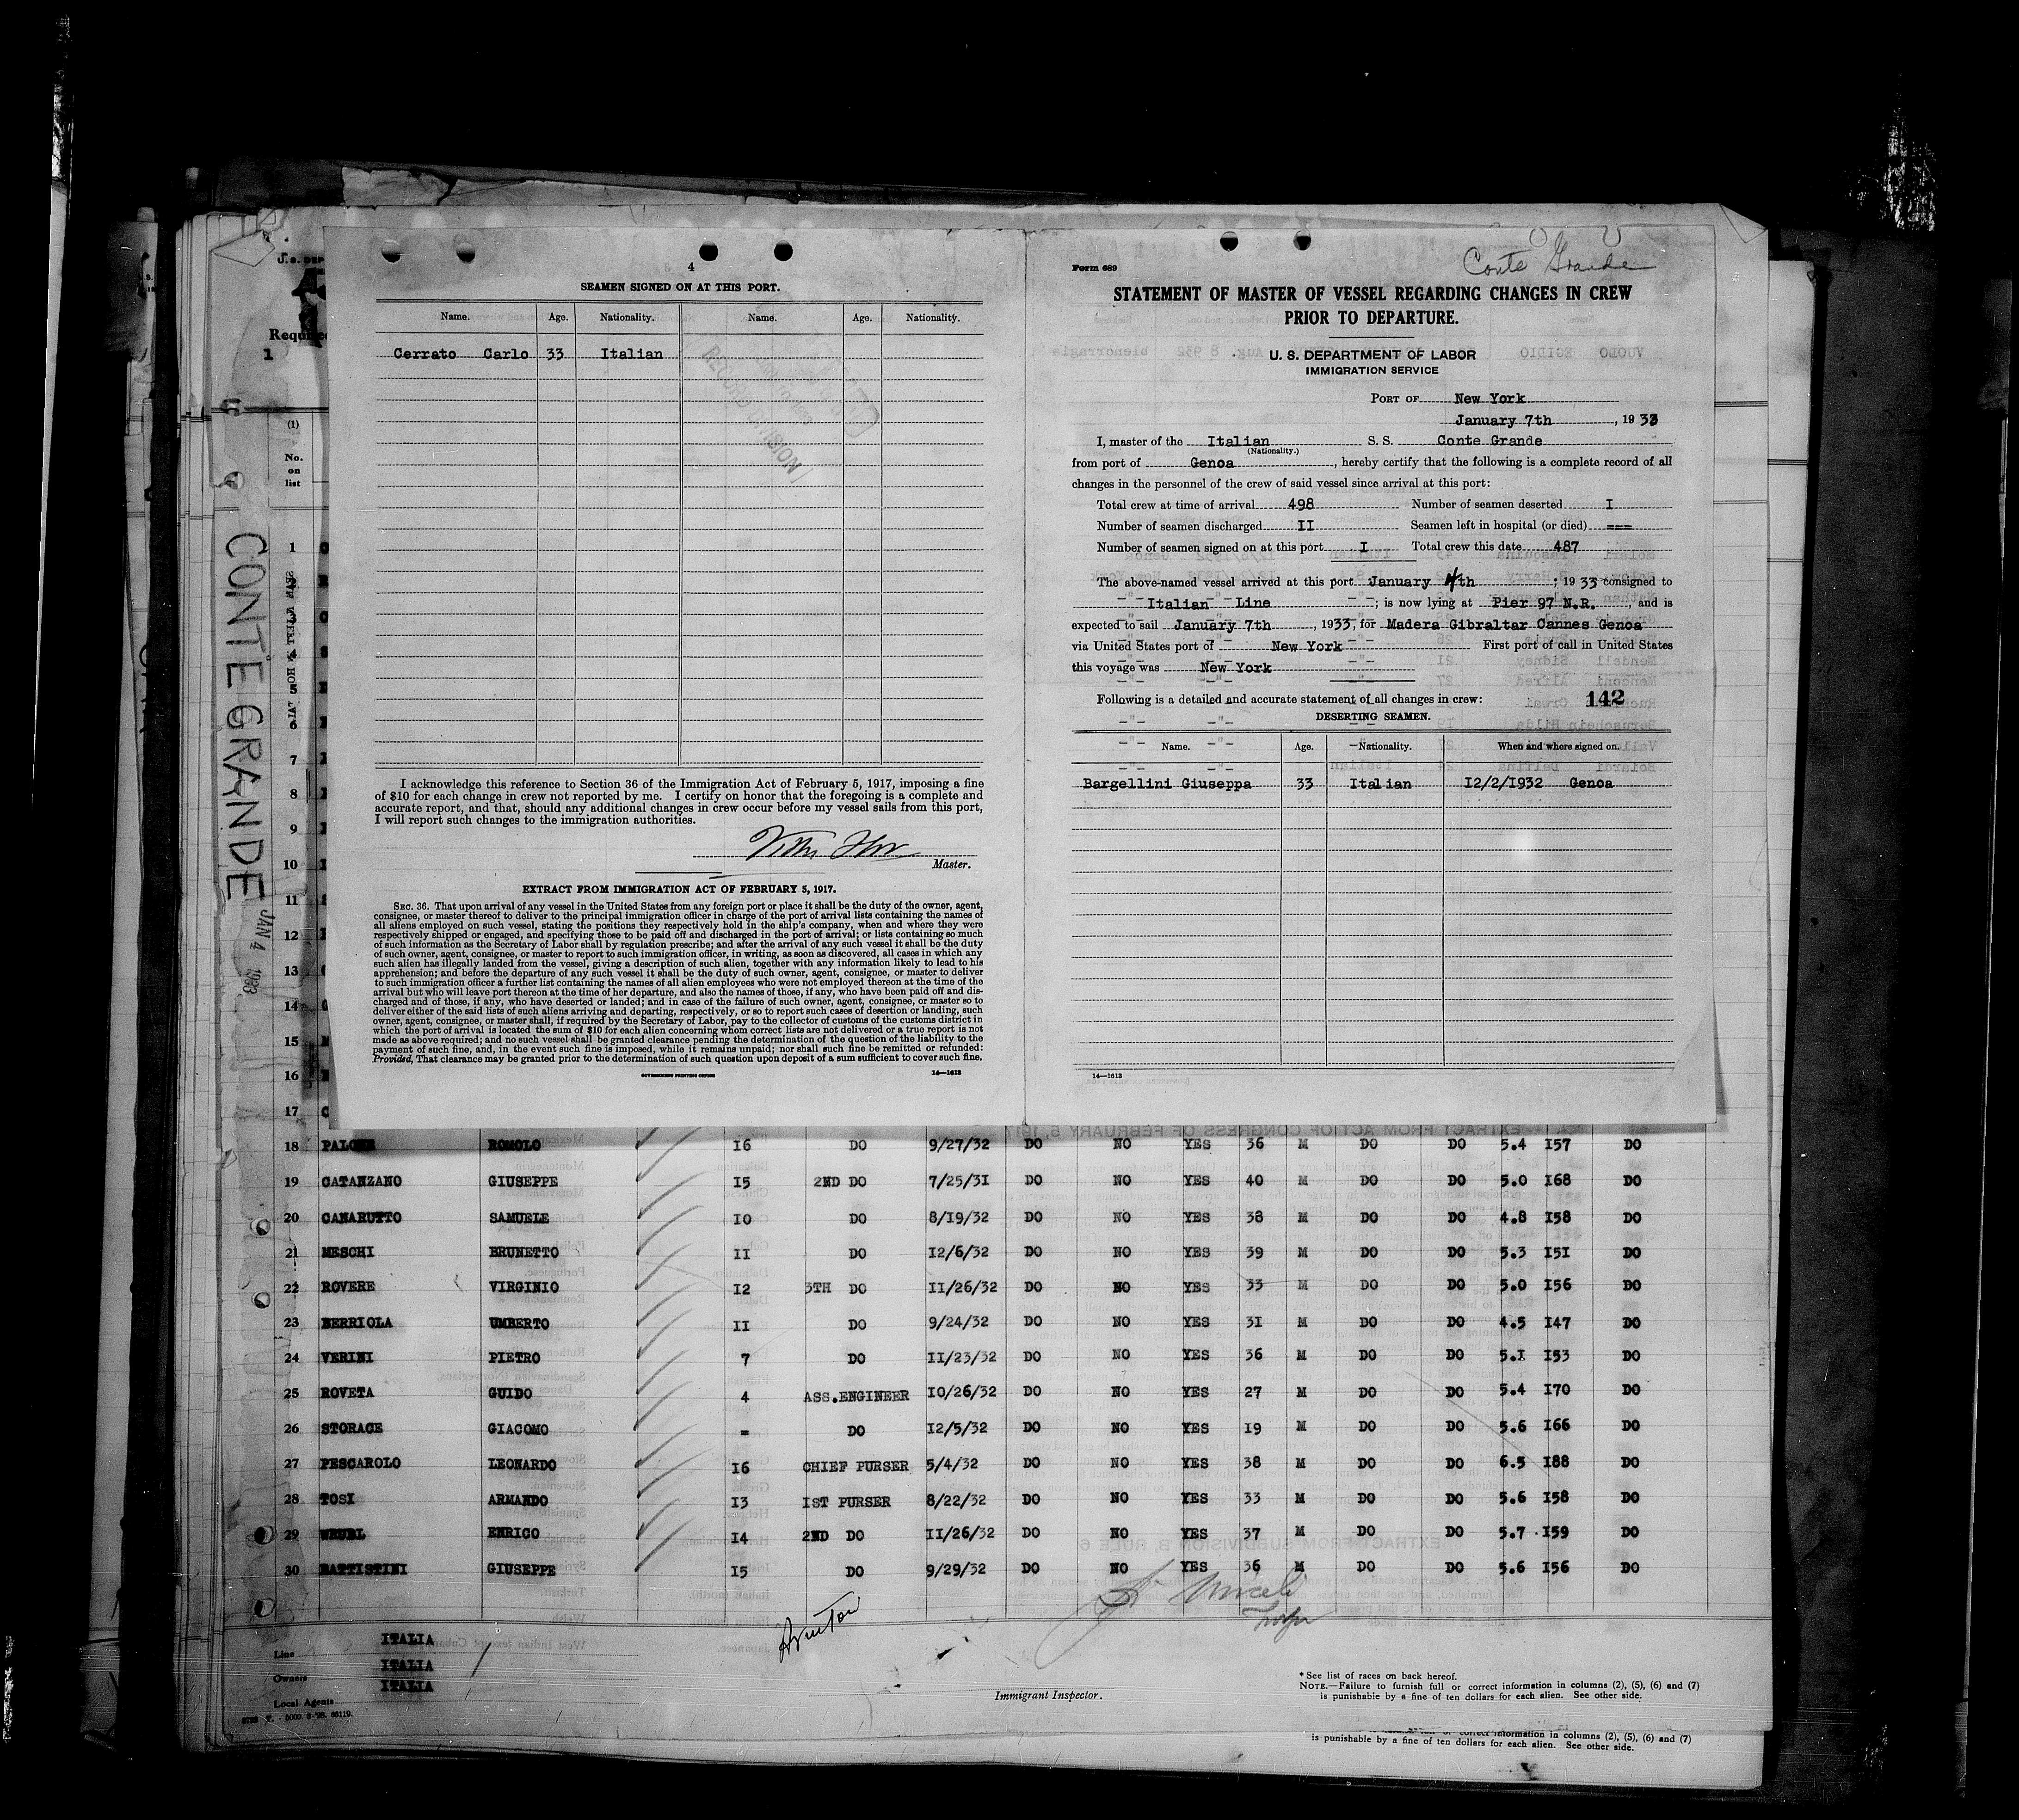 4
SEAMEN SIGNED ON AT THIS PORT.
Name. Age. Nationality. Name. Age. Nationality.
Cerrato Carlo 33 Italian
I acknowledge this reference to Section 36 of the Immigration Act of February 5, 1917, imposing a fine
of $10 for each change in crew not reported by me. I certify on honor that the foregoing is a complete and
accurate report, and that, should any additional changes in crew occur before my vessel sails from this port,
I will report such changes to the immigration authorities.
Master.
EXTRACT FROM IMMIGRATION ACT OF FEBRUARY 5, 1917.
SEC. 36. That upon arrival of any vessel in the United States from any foreign port or place it shall be the duty of the owner, agent,
consignee, or master thereof to deliver to the principal immigration officer in charge of the port of arrival lists containing the names of
all aliens employed on such vessel, stating the positions they respectively hold in the ship's company, when and where they were
respectively shipped or engaged, and specifying those to be paid off and discharged in the port of arrival; or lists containing so much
of such information as the Secretary of Labor shall by regulation prescribe; and after the arrival of any such vessel it shall be the duty
of such owner, agent, consignee, or master to report to such immigration officer, in writing, as soon as discovered, all cases in which any
such alien has illegally landed from the vessel, giving a description of such alien, together with any information likely to lead to his
apprehension; and before the departure of any such vessel it shall be the duty of such owner, agent, consignee, or master to deliver
to such immigration officer a further list containing the names of all alien employees who were not employed thereon at the time of the
arrival but who will leave port thereon at the time of her departure, and also the names of those, if any, who have been paid off and dis-
charged and of those, if any, who have deserted or landed; and in case of the failure of such owner, agent, consignee, or master so to
deliver either of the said lists of such aliens arriving and departing, respectively, or so to report such cases of desertion or landing, such
owner, agent, consignee, or master shall, if required by the Secretary of Labor, pay to the collector of customs of the customs district in
which the port of arrival is located the sum of $10 for each alien concerning whom correct lists are not delivered or a true report is not
made as above required; and no such vessel shall be granted clearance pending the determination of the question of the liability to the
payment of such fine, and, in the event such fine is imposed, while it remains unpaid; nor shall such fine be remitted or refunded:
Provided, That clearance may be granted prior to the determination of such question upon deposit of a sum sufficient to cover such fine.
GOVERNMENT PRINTING OFFICE 14—1613
Form 689
Conte Grande
STATEMENT OF MASTER OF VESSEL REGARDING CHANGES IN CREW
PRIOR TO DEPARTURE.
U. S. DEPARTMENT OF LABOR
IMMIGRATION SERVICE
PORT OF New York
January 7th, 1933
I, master of the Italian S. S. Conte Grande
(Nationality.)
from port of Genoa, hereby certify that the following is a complete record of all
changes in the personnel of the crew of said vessel since arrival at this port:
Total crew at time of arrival 498 Number of seamen deserted I
Number of seamen discharged II Seamen left in hospital (or died) ===
Number of seamen signed on at this port I Total crew this date 487
The above-named vessel arrived at this port January 4th, 1933 consigned to
Italian Line; is now lying at Pier 97 N.R., and is
expected to sail January 7th, 1933, for Madera Gibraltar Cannes Genoa
via United States port of New York First port of call in United States
this voyage was New York
Following is a detailed and accurate statement of all changes in crew: 142
DESERTING SEAMEN.
Name. Age. Nationality. When and where signed on.
Bargellini Giuseppa 33 Italian I2/2/1932 Genoa
14—1613
CONTE GRANDE
JAN 4 1933
(1)
No.
on
list
1
4
5
6
7
8
9
10
11
12
13
14
15
16
17
18 ROMOLO I6 DO 9/27/32 DO NO YES 36 M DO DO 5.4 I57 DO
19 CATANZANO GIUSEPPE I5 2ND DO 7/25/3I DO NO YES 40 M DO DO 5.0 I68 DO
20 CANARUTTO SAMUELE IO DO 8/19/32 DO NO YES 38 M DO DO 4.8 I58 DO
21 MESCHI BRUNETTO II DO I2/6/32 DO NO YES 39 M DO DO 5.3 I5I DO
22 ROVERE VIRGINIO I2 3TH DO II/26/32 DO NO YES 33 M DO DO 5.0 I56 DO
23 BERRIOLA UMBERTO II DO 9/24/32 DO NO YES 3I M DO DO 4.5 I47 DO
24 VERINI PIETRO 7 DO II/23/32 DO NO YES 36 M DO DO 5.I I53 DO
25 ROVETA GUIDO 4 ASS.ENGINEER IO/26/32 DO NO YES 27 M DO DO 5.4 I70 DO
26 STORACE GIACOMO = DO I2/5/32 DO NO YES I9 M DO DO 5.6 I66 DO
27 PESCAROLO LEONARDO I6 CHIEF PURSER 5/4/32 DO NO YES 38 M DO DO 6.5 I88 DO
28 TOSI ARMANDO I3 IST PURSER 8/22/32 DO NO YES 33 M DO DO 5.6 I58 DO
29 ENRICO I4 2ND DO II/26/32 DO NO YES 37 M DO DO 5.7 I59 DO
30 BATTISTINI GIUSEPPE I5 DO 9/29/32 DO NO YES 36 M DO DO 5.6 I56 DO
Line ITALIA
Owners ITALIA
Local Agents ITALIA
Immigrant Inspector.
* See list of races on back hereof.
NOTE.—Failure to furnish full or correct information in columns (2), (5), (6) and (7)
is punishable by a fine of ten dollars for each alien. See other side.
correct information in columns (2), (5), (6) and (7)
is punishable by a fine of ten dollars for each alien. See other side.